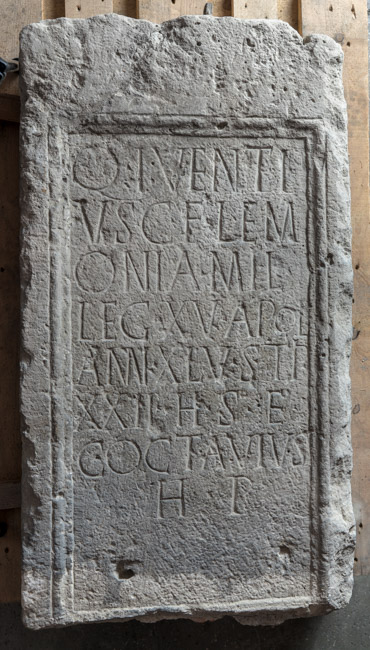 Q·IVENTI
VS·C·F·LEM
ONIA·MIL
LEG·XV·APOL
ANN·XLV·STI
XXII·H·S·E
C·OCTAVIVS
H P